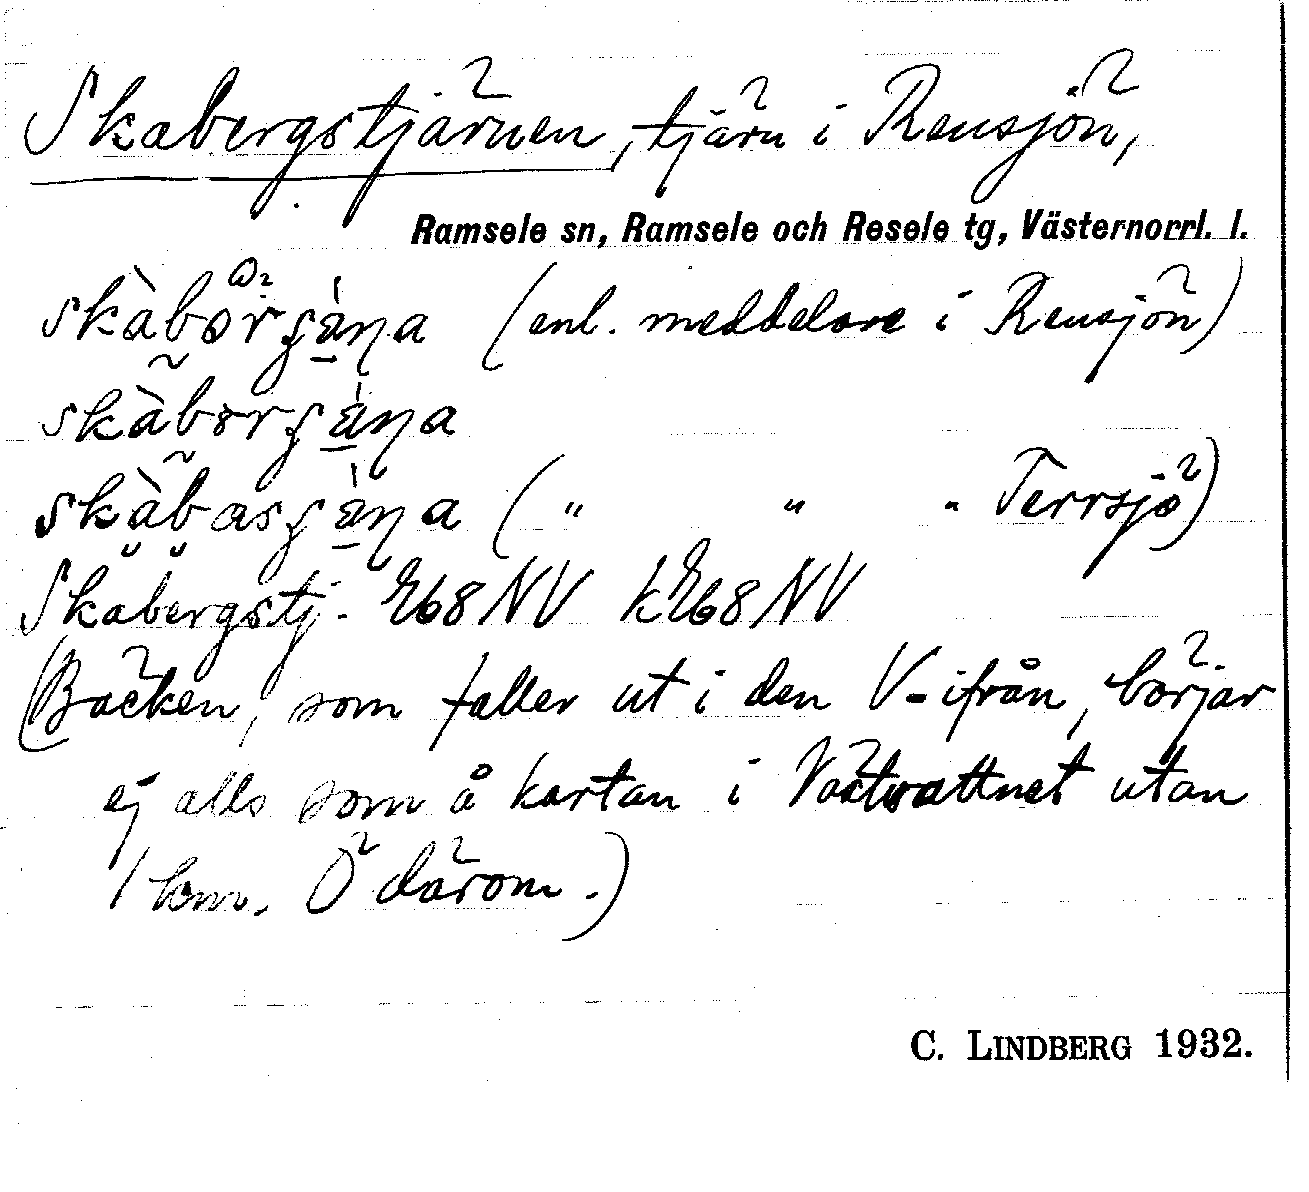 Skabergstjärnen, tjärn i Rensjön,
Ramsele sn, Ramsele och Resele tg, Västernorrl. l.
(enl. meddelare i Rensjön)
( " " " Terrsjö)
Skabergstj. E68NV kE68NV
(Bäcken, som faller ut i den V-ifrån, börjar
ej alls som å kartan i Västvattnet utan
1 km. Ö därom.)
C. LINDBERG 1932.